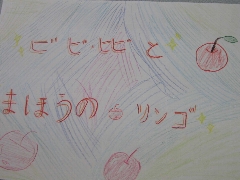 ビビ・ビビと
まほうのリンゴ